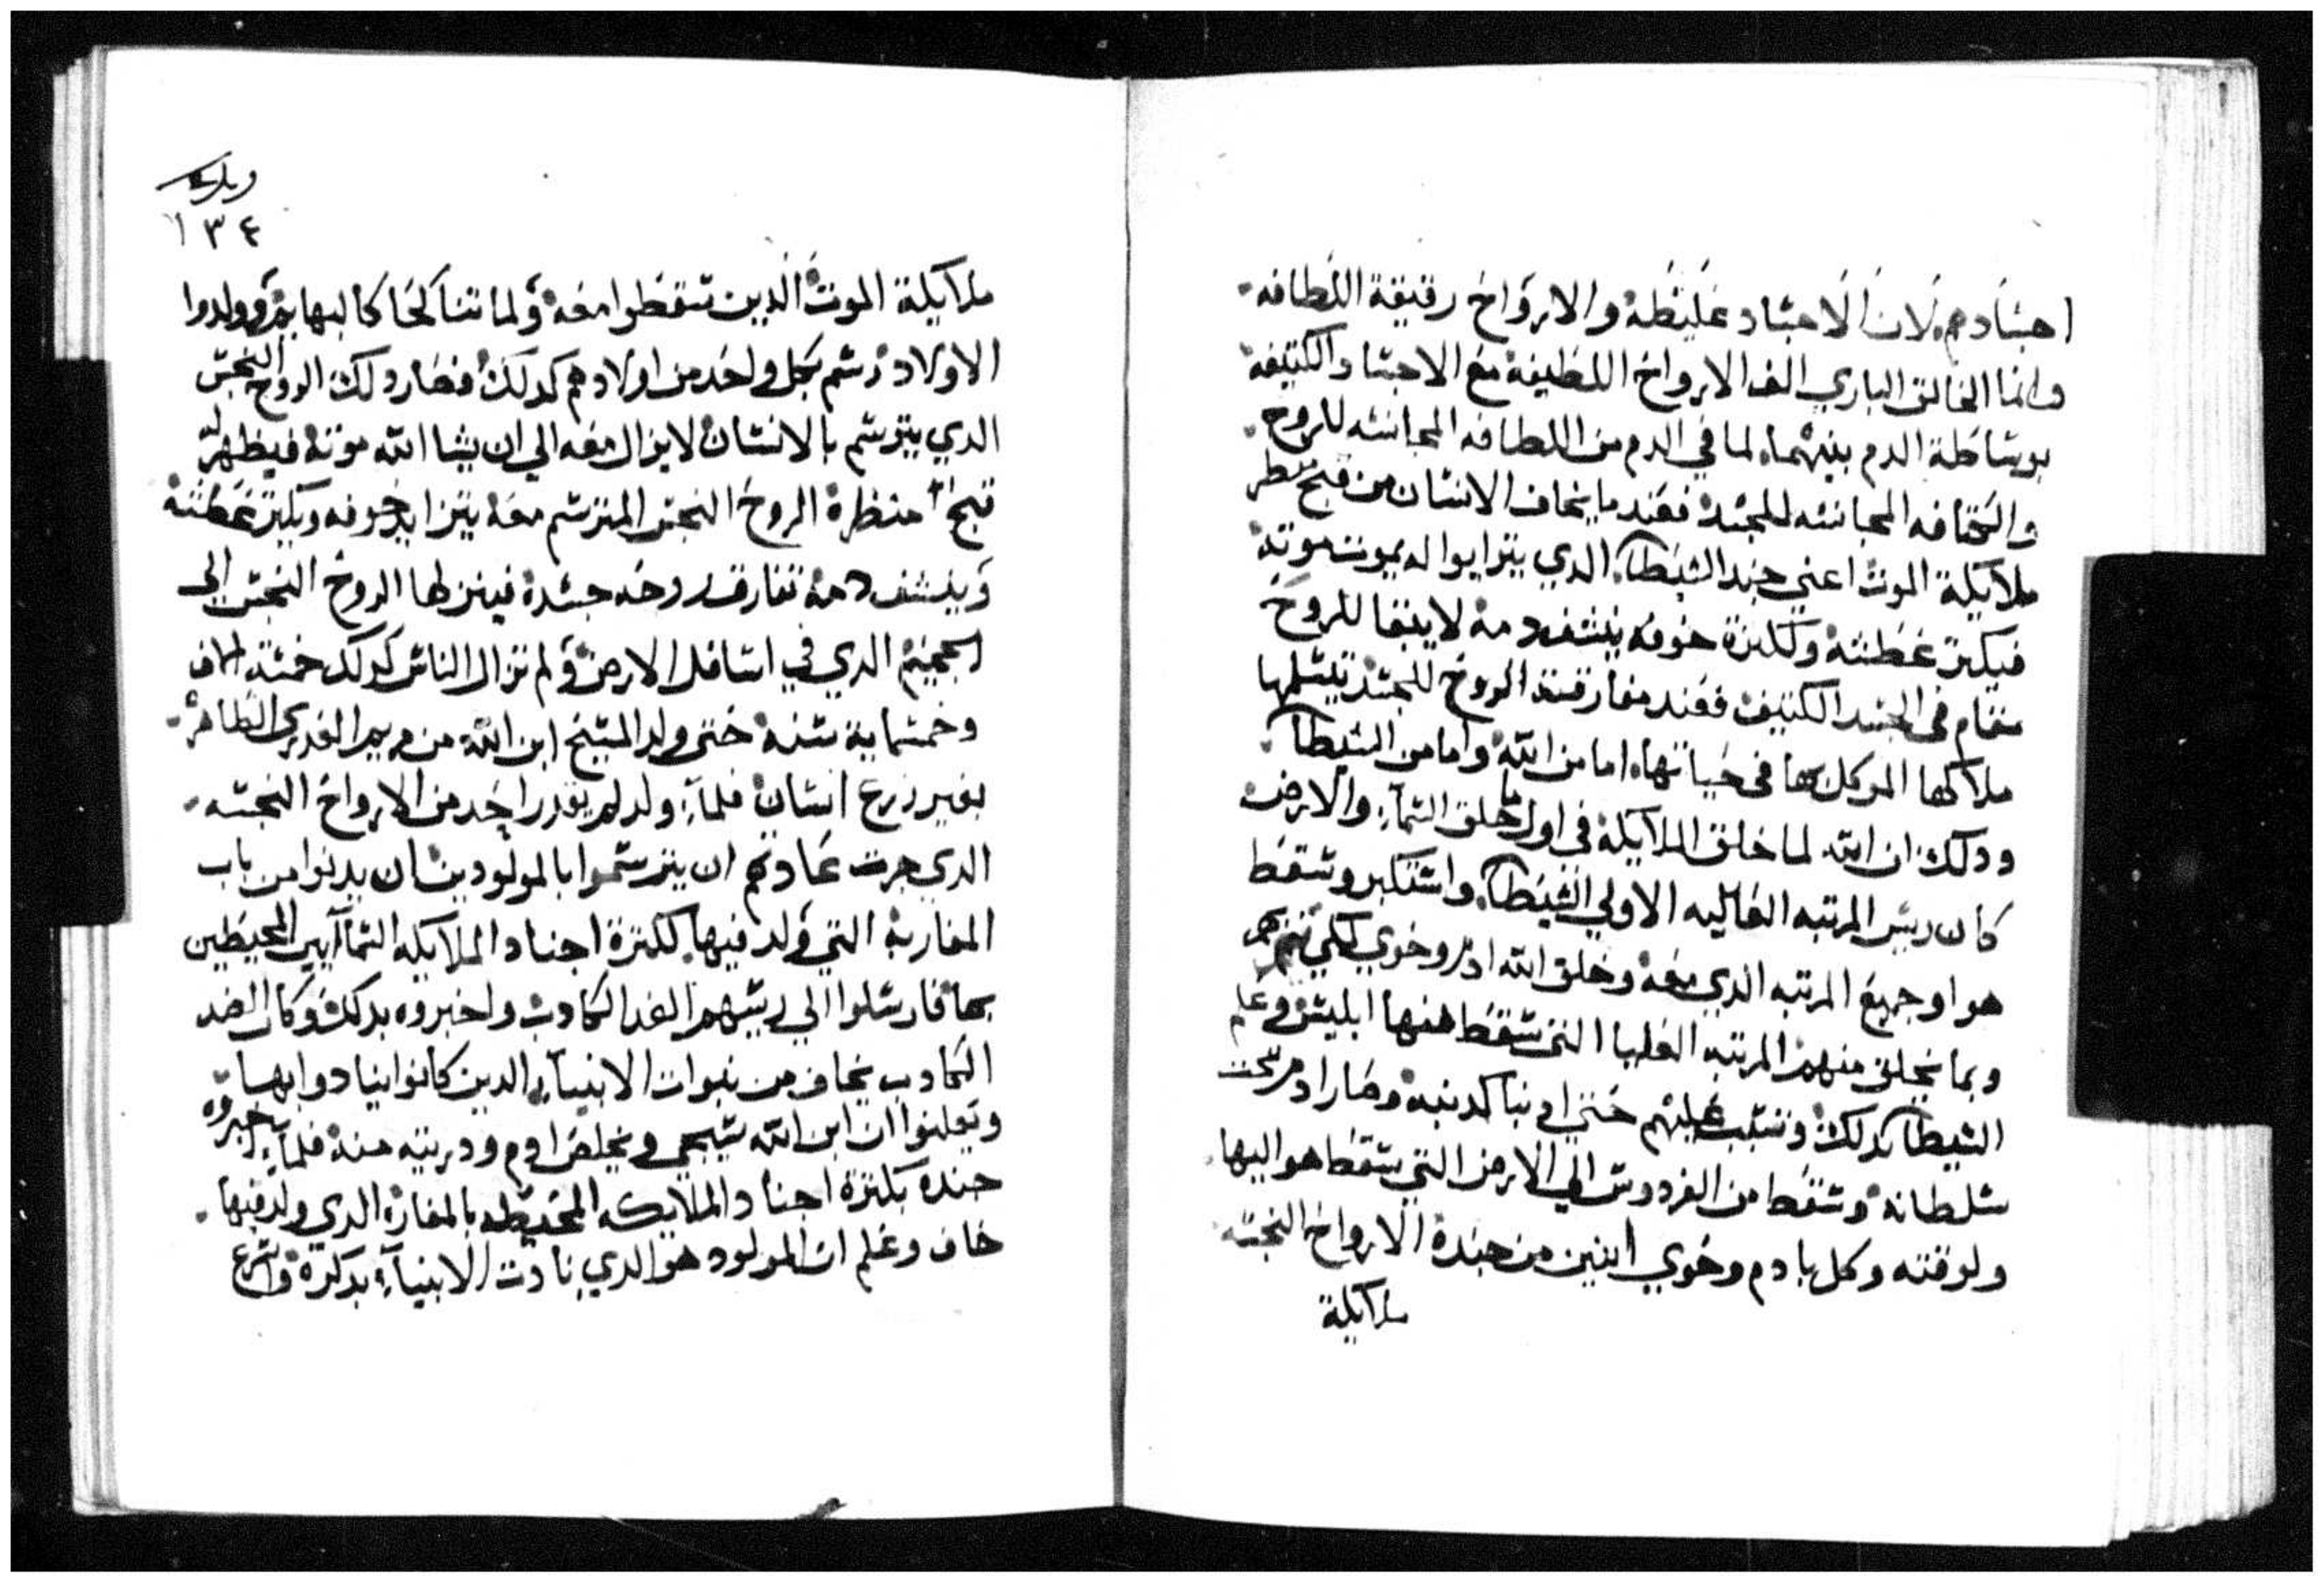 اجسادهم لان الاجساد غليظه والارواح رقيقة اللطافه
وانما الخالق الباري الف الارواح اللطيفه مع الاجساد الكتيفه
بوساطة الدم بينهما لما في الدم من اللطافه المجانسه للروح
والكتافه المجانسه للجسد فعند ما يخاف الانسان من قبح منظر
ملايكة الموت اعني جند الشيطان الدي يترايوا له بموت موته
فيكتر غطته وكترة خوفه ينشف دمه لا يبقا للروح
مقام في الجسد الكتيف فعند مفارقة الروح للجسد يتسلمها
ملاكها الموكل بها في حياتها اما من الله واما من الشيطان
ودلك ان الله لما خلق الملايكة في اول ما خلق السماء والارض
كان ريس المرتبه العاليه الاولي الشيطان واستكبر وسقط
هوا وجميع المرتبه الدي معه وخلق الله ادم وحوي لكي
وبما يخلق منهم المرتبه العليا التي سقط منها ابليس وعلم
الشيطان بدلك وتسبب عليهم حتي وصار ادم تحت
سلطانه وسقط من الفردوس الي الارض التي سقط هو اليها
ولوقته وكل بادم وحوي اتنين من جنده الارواح النجسه
ملايكة
١٣٤
ملايكة الموت الدين سقطوا معه ولما تناكحا كالبهايم وولدوا
الاولاد رسم بكل واحد من اولادهم كدلك فصار دلك الروح النجس
الدي يترسم بالانسان لا يزال معه الي ان يشا الله موته فيظهر له
قبح منظرة الروح النجس المترسم معه يتزايد خوفه ويكتر غطته
وينشف دمه تفارق روحه جسده فينزلها الروح النجس الي
الجحيم الدي في اسافل الارض ولم تزال الناس كدلك خمسة الاف
وخمسماية سنه حتي ولد المسيح ابن الله من مريم العدري الطاهره
بغير زرع انسان فلما ولد لم يقدر احد من الارواح النجسه
الدي جرت عادتهم ان يترسموا بالمولودين ان يدنوا من باب
المغارة التي ولد فيها لكترة اجناد الملايكه السماايين المحيطين
بها فارسلوا الي ريسهم الضد الكادب واخبروه بدلك وكان الضد
الكادب يخاف من نبوات الانبياء الدين كانوا ينادوا بها
ويعلنوا ان ابن الله سيجي ويخلص ادم ودريته منه فلما اخبروه
جنده بكترة اجناد الملايكه المحيطه بالمغارة الدي ولد فيها
خاف وعلم ان المولود هو الدي نادت الانبياء بدكره واسرع